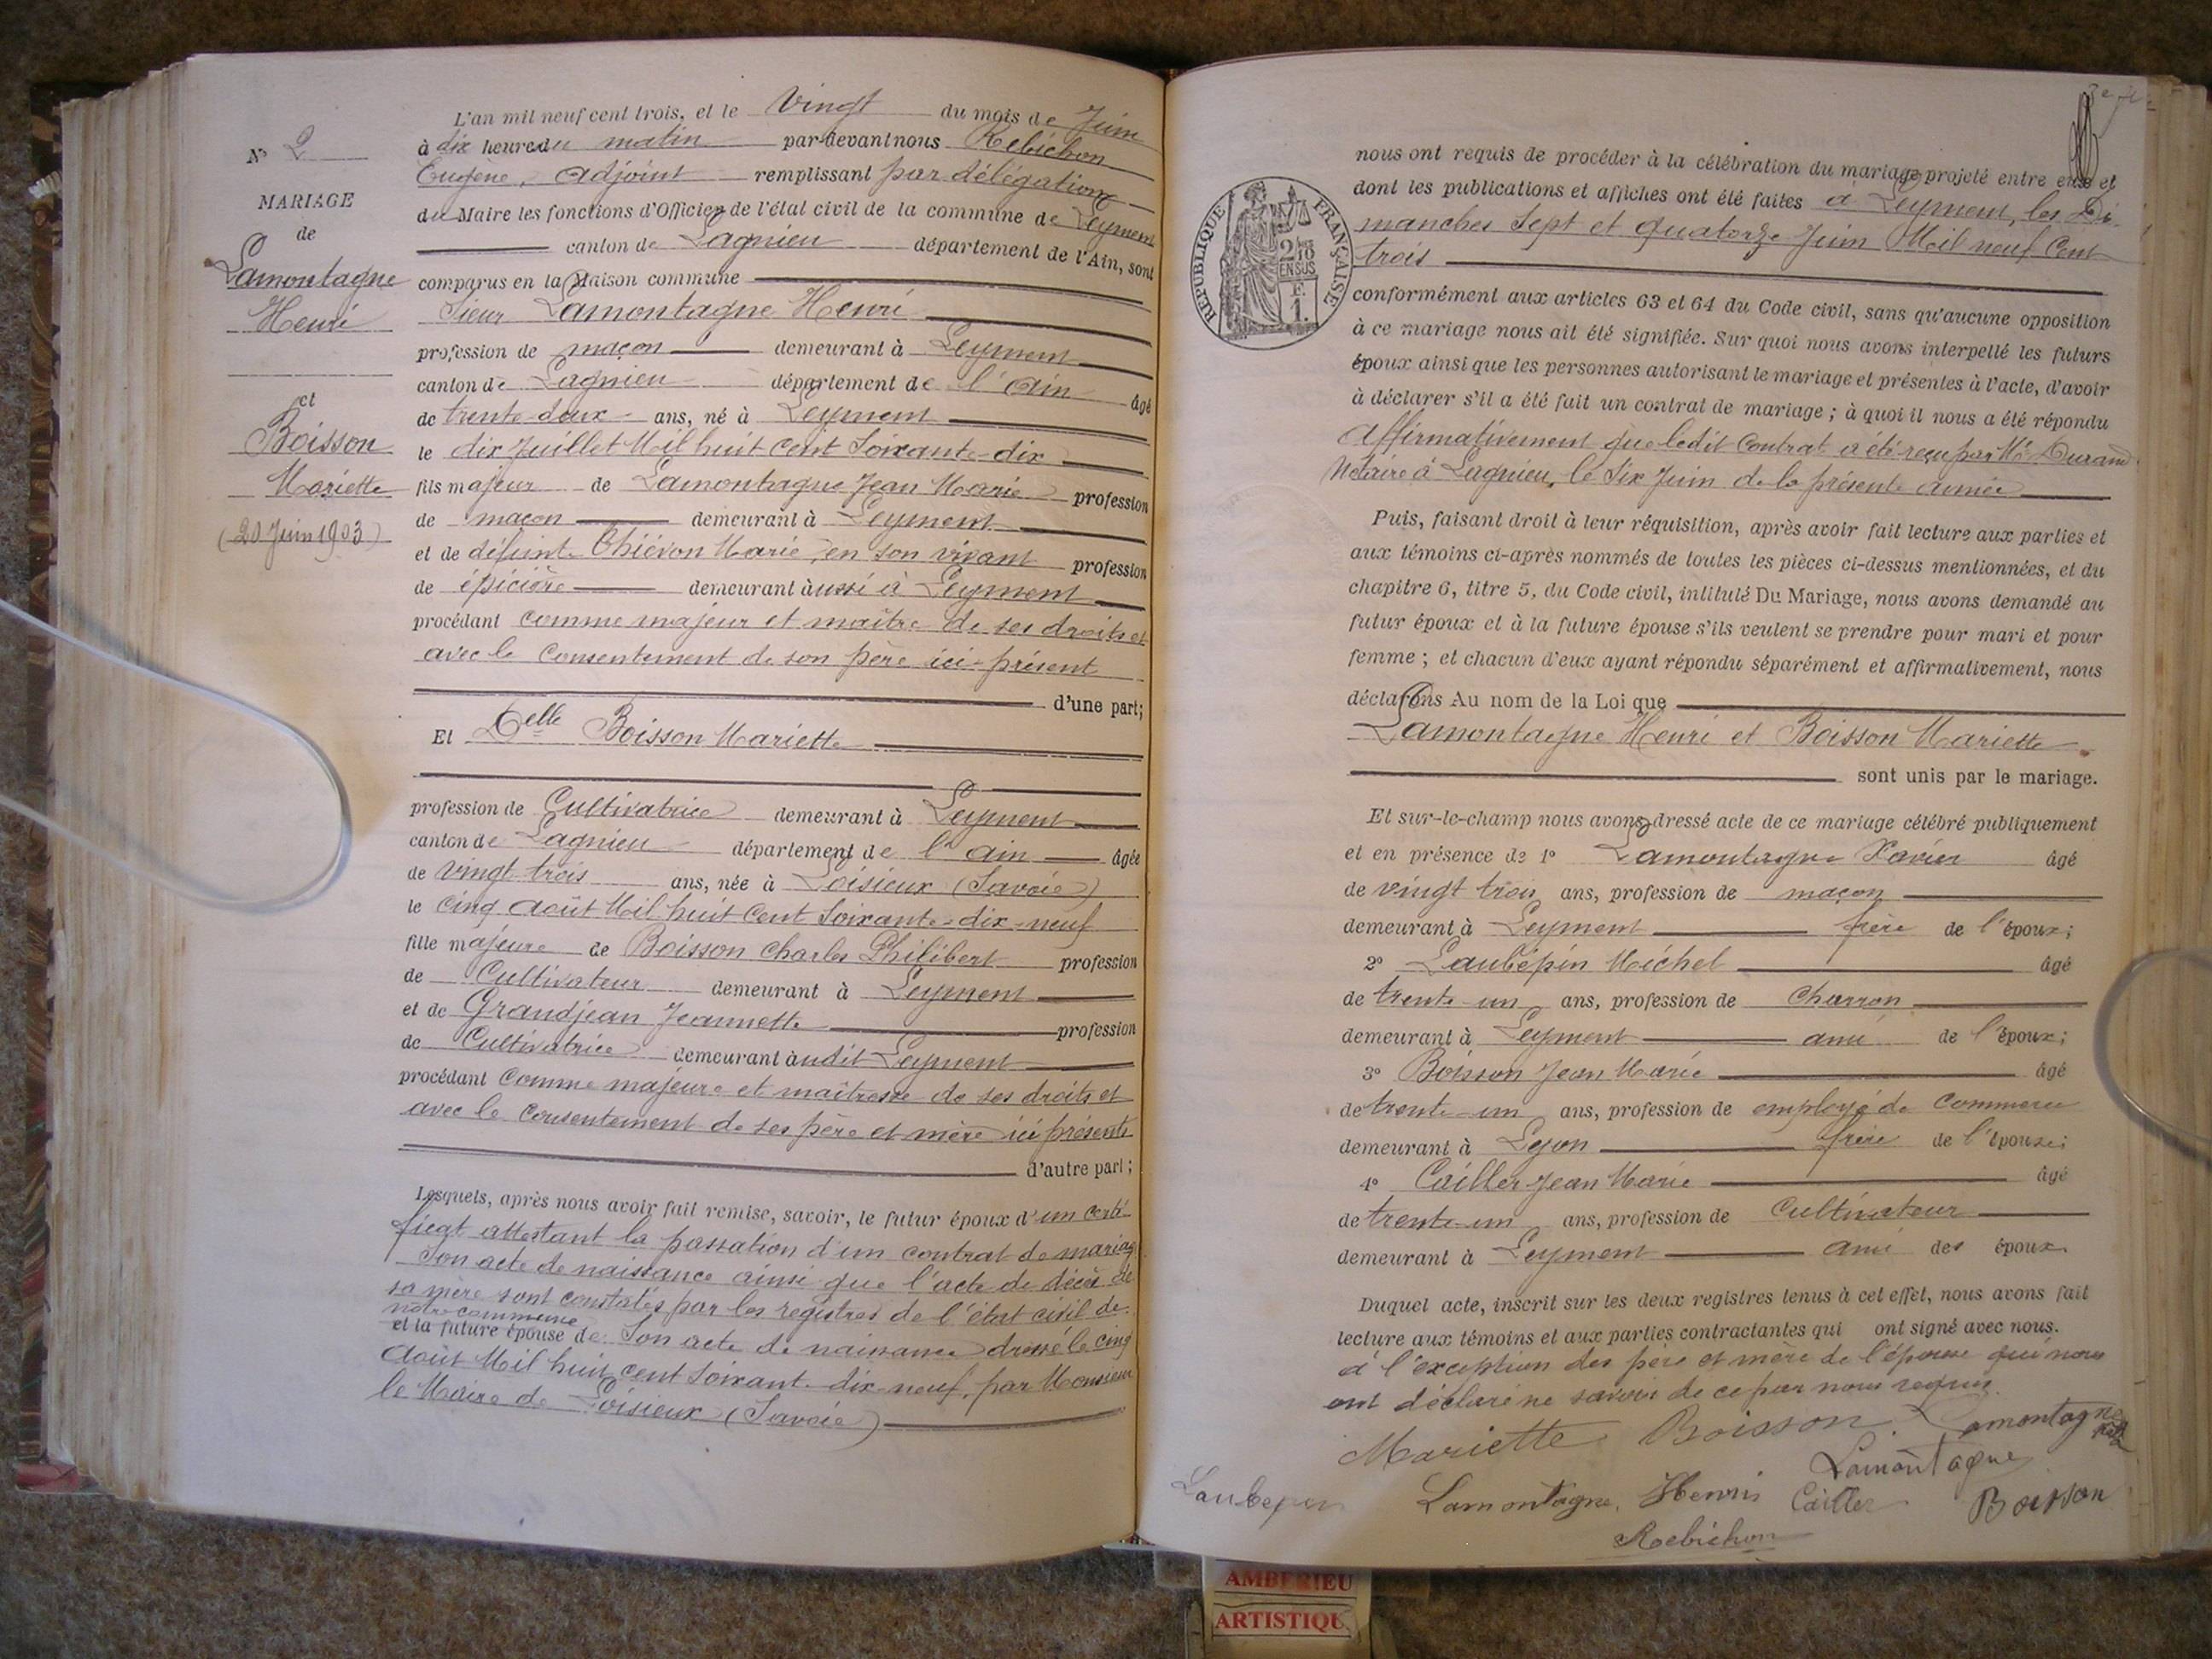 L'an mil neuf cent trois, et le Vingt du mois de Juin
à dix heures du matin par-devant nous Rebichon
Eugène, Adjoint remplissant par délégation
du Maire les fonctions d'Officier de l'état civil de la commune de Leyment
canton de Lagnieu département de l'Ain, sont
comparus en la Maison commune
Sieur Lamontagne Henri
profession de maçon demeurant à Leyment
canton de Lagnieu département de l'Ain âgé
de trente-deux ans, né à Leyment
le dix Juillet Mil huit cent Soixante-dix
fils majeur de Lamontagne Jean Marie profession
de maçon demeurant à Leyment
et de défunte Thiévon Marie, en son vivant profession
de épicière demeurant aussi à Leyment
procédant comme majeur et maître de ses droits et
avec le consentement de son père ici-présent
d'une part;
Et Delle Boisson Mariette
profession de Cultivatrice demeurant à Leyment
canton de Lagnieu département de l'Ain âgée
de vingt trois ans, née à Loisieux (Savoie)
le cinq Août Mil huit Cent Soixante-dix-neuf
fille majeure de Boisson Charles Philibert profession
de Cultivateur demeurant à Leyment
et de Grandjean Jeannette profession
de Cultivatrice demeurant audit Leyment
procédant comme majeure et maîtresse de ses droits et
avec le consentement de ses père et mère ici présents
d'autre part;
Lesquels, après nous avoir fait remise, savoir, le futur époux d'un certi
ficat attestant la passation d'un contrat de mariage
Son acte de naissance ainsi que l'acte de décès de
sa mère sont constatés par les registres de l'état civil de
notre commune
et la future épouse de Son acte de naissance dressé le cinq
Août Mil huit cent Soixante-dix-neuf, par Monsieur
le Maire de Loisieux (Savoie)
N° 2
MARIAGE
de
Lamontagne
Henri
et
Boisson
Mariette
(20 Juin 1903)
nous ont requis de procéder à la célébration du mariage projeté entre eux et
dont les publications et affiches ont été faites à Leyment, les Di-
manches Sept et quatorze Juin Mil neuf Cent
trois
REPUBLIQUE FRANÇAISE
2/10
EN SUS
F.
1.
conformément aux articles 63 et 64 du Code civil, sans qu'aucune opposition
à ce mariage nous ait été signifiée. Sur quoi nous avons interpellé les futurs
époux ainsi que les personnes autorisant le mariage et présentes à l'acte, d'avoir
à déclarer s'il a été fait un contrat de mariage; à quoi il nous a été répondu
Affirmativement que ledit Contrat a été reçu par Me Durand
Notaire à Lagnieu, le Six Juin de la présente année
Puis, faisant droit à leur réquisition, après avoir fait lecture aux parties et
aux témoins ci-après nommés de toutes les pièces ci-dessus mentionnées, et du
chapitre 6, titre 5, du Code civil, intitulé Du Mariage, nous avons demandé au
futur époux et à la future épouse s'ils veulent se prendre pour mari et pour
femme; et chacun d'eux ayant répondu séparément et affirmativement, nous
déclarons Au nom de la Loi que
Lamontagne Henri et Boisson Mariette
sont unis par le mariage.
Et sur-le-champ nous avons dressé acte de ce mariage célébré publiquement
et en présence de 1° Lamontagne Xavier âgé
de vingt trois ans, profession de maçon
demeurant à Leyment frère de l'époux;
2° Laubépin Michel âgé
de trente-un ans, profession de charron
demeurant à Leyment ami de l'époux;
3° Boisson Jean Marie âgé
de trente-un ans, profession de employé de commerce
demeurant à Leyon frère de l'épouse;
4° Cailler Jean Marie âgé
de trente-un ans, profession de Cultivateur
demeurant à Leyment ami des époux
Duquel acte, inscrit sur les deux registres tenus à cet effet, nous avons fait
lecture aux témoins et aux parties contractantes qui ont signé avec nous.
à l'exception des père et mère de l'épouse qui nous
ont déclaré ne savoir de ce par nous requis.
Mariette Boisson Lamontagne
Lamontagne
Laubepin Lamontagne Henri Cailler Boisson
Rebichon
AMBERIEU
ARTISTIQU